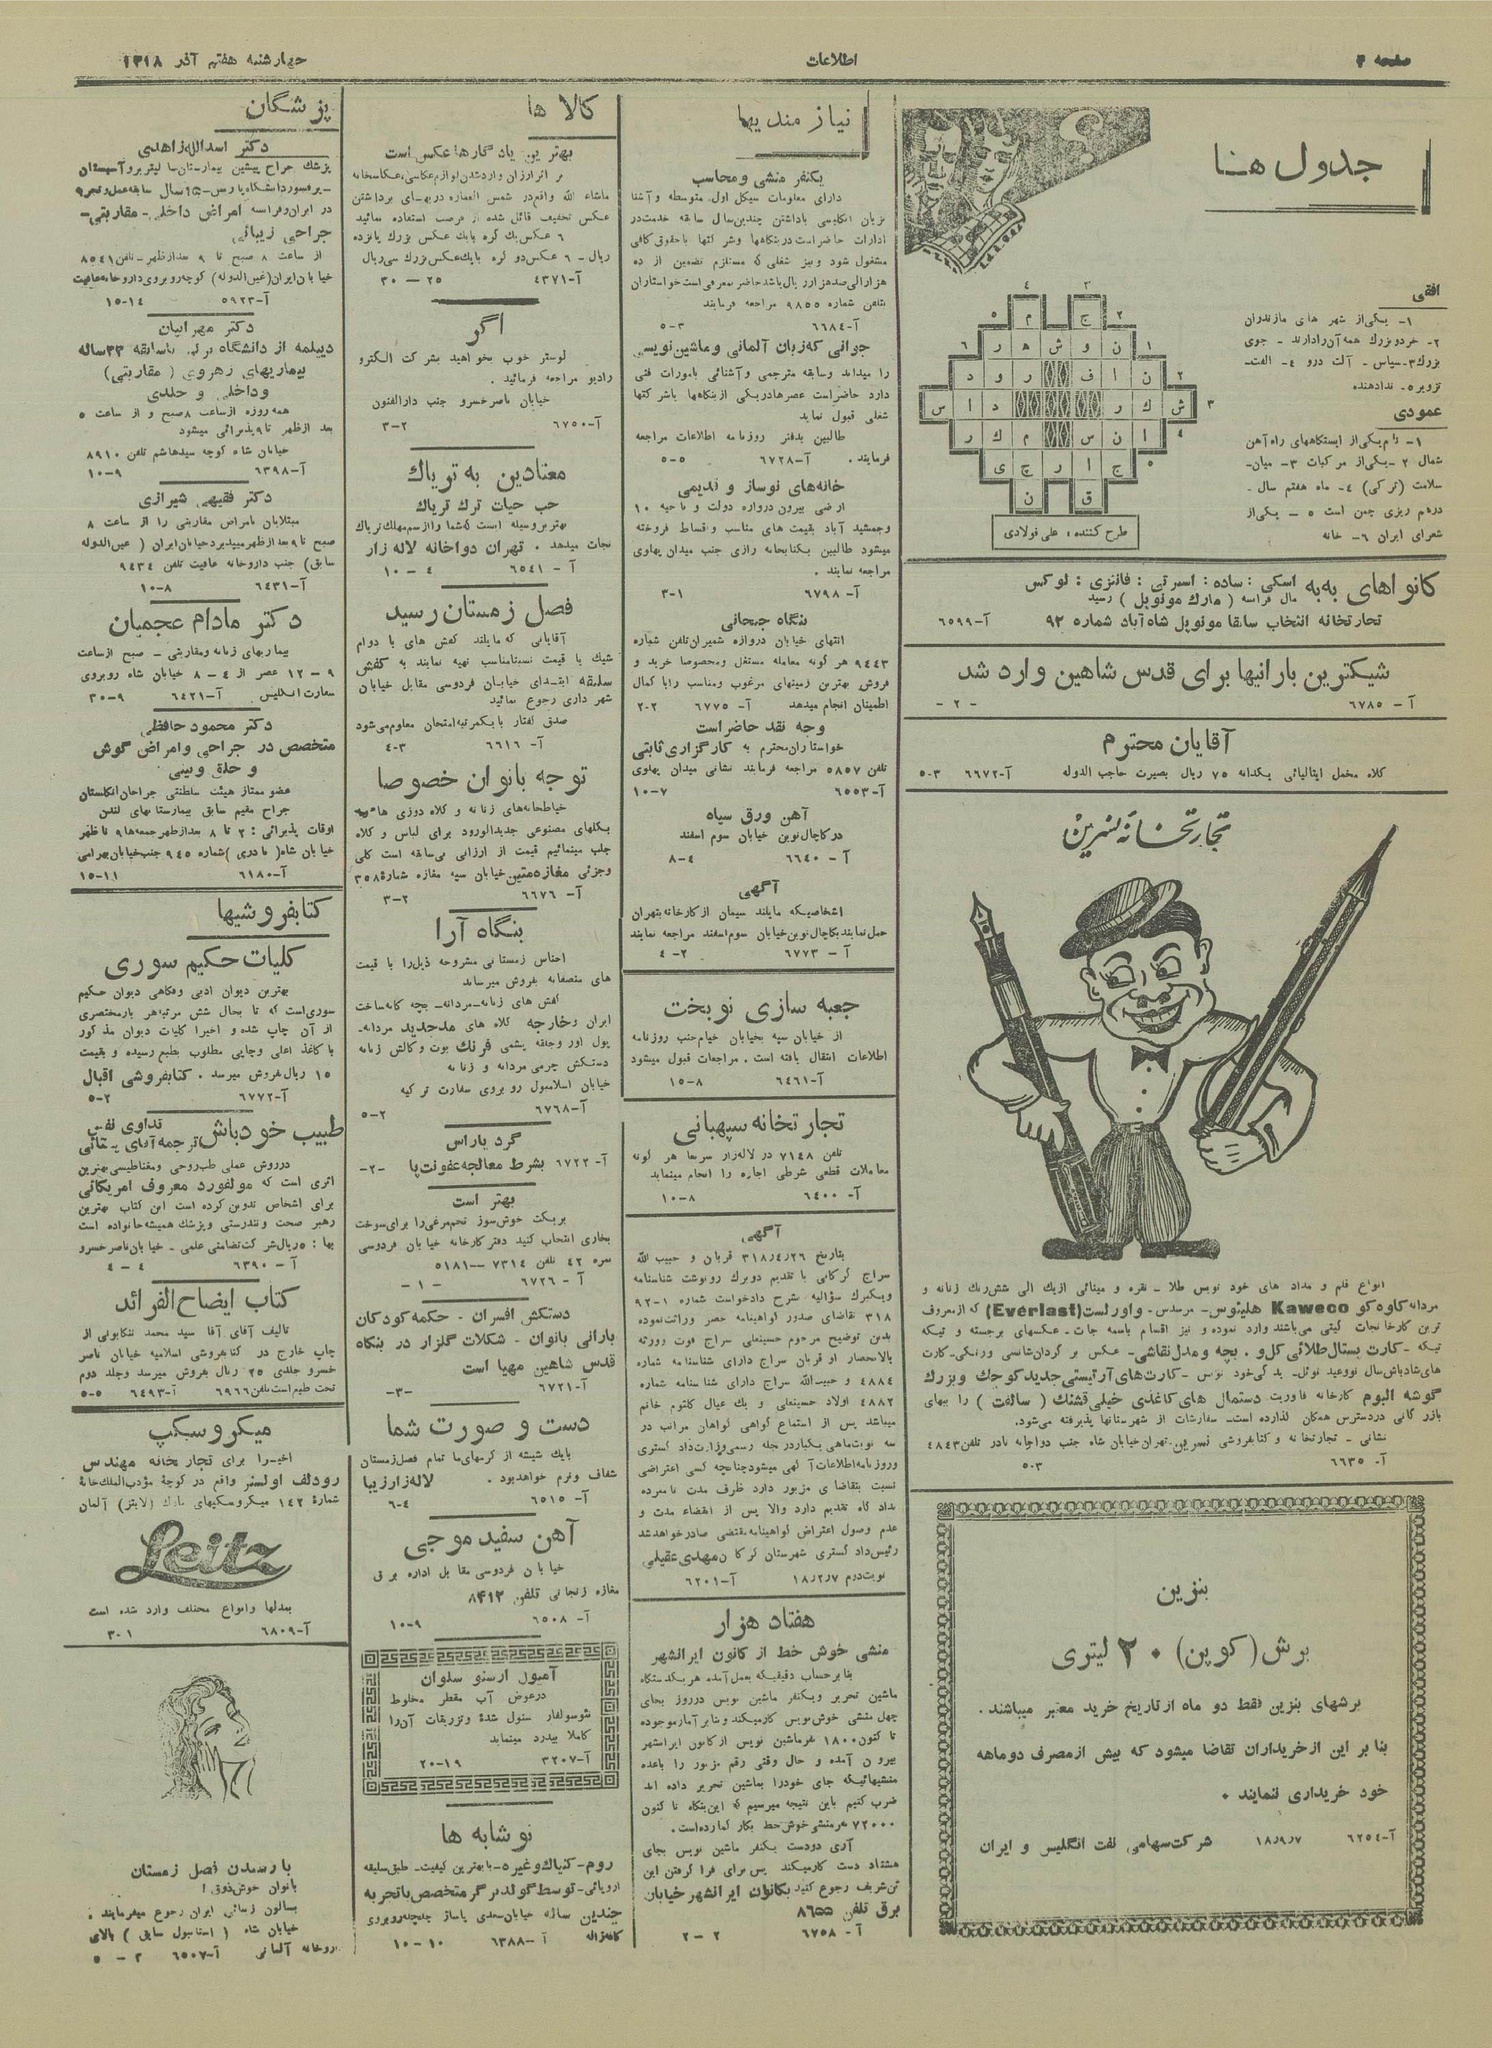 صفحه ۴
اطلاعات
چهارشنبه هفتم آذر ۱۳۱۸
جدول هنا
افقی
۱- یکی از شهر های مازندران
۲- خرد و بزرك همه آن را دارند - جوی
بزرك ۳- سپاس - آلت درو ۴- الفت-
تزویر ۵- ندا دهنده
عمودی
۱- نام یکی از ایستگاههای راه آهن
شمال ۲- یکی از مرکبات ۳- میان-
سلامت (ترکی) ۴- ماه هفتم سال -
درهم ریزی چمن است ۵ - یکی از
شعرای ایران ۶- خانه
طرح کننده : علی فولادی
کانواهای به به اسکی : ساده : اسپرتی : فانتزی : لوکس
مال فرانسه ( مارك مونوپل ) رسید
تجارتخانه انتخاب سابقا مونوپل شاه آباد شماره ۹۲ آ-۶۵۹۹
شیكترین بارانیها برای قدس شاهین وارد شد
آ - ۶۷۸۵ - ۲ -
آقایان محترم
کلاه مخمل ایتالیائی یکدانه ۷۵ ریال بصیرت حاجب الدوله آ-۶۶۷۲ ۳-۵
تجارتخانه نسرین
انواع قلم و مداد های خود نویس طلا - نقره و مینائی از یك الی شش رنك زنانه و
مردانه کاوه کو Kaweco هلینوس- مرسدس- واورلست (Everlast) که از معروف
ترین کارخانجات گیتی می‌باشند وارد نموده و نیز اقسام باسمه جات - عکسهای برجسته و تیکه
تیکه - کارت پستال طلائی گل و . بچه و مدل نقاشی- عکس بر گردان شانسی ورنگی-کارت
گوشه البوم کارخانه فاوریت دستمال های کاغذی خیلی قشنك ( سالفت ) را ببهای
بازرگانی در دسترس همگان گذارده است- سفارشات از شهرستانها پذیرفته می‌شود.
نشانی - تجارتخانه و کتابفروشی نسرین-تهران خیابان شاه جنب دواخانه نادر تلفن ۴۸۴۳
آ- ۶۶۳۵ ۳-۵
بنزین
برش (کوپن) ۲۰ لیتری
برشهای بنزین فقط دو ماه از تاریخ خرید معتبر میباشند .
بنا بر این از خریداران تقاضا میشود که بیش از مصرف دوماهه
خود خریداری ننمایند .
آ-۶۲۵۴ ۱۸/۹/۷ شرکت سهامی نفت انگلیس و ایران
نیازمندیها
یکنفر منشی و محاسب
دارای معلومات سیکل اول متوسطه و آشنا
بزبان انگلیسی باداشتن چندین سال سابقه خدمت در
ادارات حاضر است در بنگاهها و شرکتها با حقوق کافی
مشغول شود و نیز شغلی که مستلزم تضمین از ده
هزار الی صد هزار ریال باشد حاضر بمعرفی است خواستاران
بتلفن شماره ۹۸۵۵ مراجعه فرمایند
آ-۶۶۸۴ ۳-۵
جوانی که زبان آلمانی و ماشین نویسی
را میداند و سابقه مترجمی و آشنائی بامورات فنی
دارد حاضر است عصرها در یکی از بنگاهها یا شرکتها
شغلی قبول نماید
طالبین بدفتر روزنامه اطلاعات مراجعه
فرمایند . آ-۶۷۲۸ ۵-۵
خانه‌های نوساز و قدیمی
ارضی بیرون دروازه دولت و ناحیه ۱۰
و جمشید آباد بقیمت های مناسب و اقساط فروخته
میشود طالبین بکتابخانه رازی جنب میدان پهلوی
مراجعه نمایند .
آ- ۶۷۹۸ ۱-۳
بنگاه جیحانی
انتهای خیابان دروازه شمیران تلفن شماره
۹۴۴۳ هر گونه معامله مستغل و مخصوصا خرید و
فروش بهترین زمینهای مرغوب و مناسب را با کمال
اطمینان انجام میدهد آ- ۶۷۷۵ ۲-۲
وجه نقد حاضر است
خواستاران محترم به کارگزاری ثابتی
تلفن ۵۸۵۷ مراجعه فرمایند نشانی میدان پهلوی
آ-۶۵۵۳ ۷-۱۰
آهن ورق سیاه
در کاچال نوین خیابان سوم اسفند
آ - ۶۶۴۰ ۴-۸
آگهی
اشخاصیکه مایلند سیمان از کارخانه بتهران
حمل نمایند بکاچال نوین خیابان سوم اسفند مراجعه نمایند
آ - ۶۷۷۳ ۲-۴
جعبه سازی نوبخت
از خیابان سپه بخیابان خیام جنب روزنامه
اطلاعات انتقال یافته است . مراجعات قبول میشود
آ-۶۴۶۱ ۸-۱۵
تجارتخانه سپهبانی
تلفن ۷۱۴۸ در لاله زار سریعا هر گونه
معاملات قطعی شرطی اجاره را انجام مینماید
آ- ۶۴۰۰ ۸-۱۰
آگهی
بتاریخ ۳۱۸/۴/۲۶ قربان و حبیب الله
سراج گرگانی با تقدیم دو برك رونوشت شناسنامه
ویکبرك سؤالیه بشرح دادخواست شماره ۱-۹۲
۳۱۸ تقاضای صدور گواهینامه حصر وراثت نموده
بدین توضیح مرحوم حسینعلی سراج فوت و ورثه
بالانحصار او قربان سراج دارای شناسنامه شماره
۴۸۸۴ و حبیب الله سراج دارای شناسنامه شماره
۴۸۸۲ اولاد حسینعلی و یك عیال کلثوم خانم
میباشد پس از استماع گواهی گواهان مراتب در
سه نوبت ماهی یکبار در مجله رسمی وزارت دادگستری
و روزنامه اطلاعات آگهی میشود چنانچه کسی اعتراضی
نسبت بتقاضای مزبور دارد ظرف مدت نامبرده
بدادگاه تقدیم دارد والا پس از انقضاء مدت و
عدم وصول اعتراض گواهینامه مقتضی صادر خواهد شد
رئیس دادگستری شهرستان گرگان مهدی عقیلی
نوبت دوم ۱۸/۲/۷ آ-۶۲۰۱
هفتاد هزار
منشی خوش خط از کانون ایرانشهر
بنا بر حساب دقیقیکه بعمل آمده هر یکدستگاه
ماشین تحریر و یکنفر ماشین نویس در روز بجای
چهل منشی خوش نویس کار میکند و بنا بر آمار موجوده
تا کنون ۱۸۰۰ نفر ماشین نویس از کانون ایرانشهر
بیرون آمده و حال وقتی رقم مزبور را باعده
منشیهائیکه جای خود را بماشین تحریر داده اند
ضرب کنیم باین نتیجه میرسیم که این بنگاه تا کنون
۷۲۰۰۰ نفر منشی خوش خط بکار گمارده است.
آری دو دست یکنفر ماشین نویس بجای
هشتاد دست کار میکند پس برای فرا گرفتن این
فن شریف رجوع کنید بکانون ایرانشهر خیابان
برق تلفن ۸۶۵۵
آ- ۶۷۵۸ ۲ - ۲
کالا ها
بهترین یادگارها عکس است
بر اثر ارزان وارد شدن لوازم عکاسی، عکاسخانه
ماشاء الله واقع در شمس العماره در بهای برداشتن
عکس تخفیف قائل شده از فرصت استفاده نمائید
۶ عکس یك کره با یك عکس بزرك پانزده
ریال - ۶ عکس دو کره با یك عکس بزرك سی ریال
آ-۴۳۷۱ ۲۵ - ۳۰
اگر
لوستر خوب بخواهید بشرکت الکترو
رادیو مراجعه فرمائید .
خیابان ناصر خسرو جنب دارالفنون
آ-۶۷۵۰ ۲-۳
معتادین به تریاك
حب حیات ترك تریاك
بهترین وسیله است که شما را از سم مهلك تریاك
نجات میدهد . تهران دواخانه لاله زار
آ - ۶۵۴۱ ۴ - ۱۰
فصل زمستان رسید
آقایانی که مایلند کفش های با دوام
شیك با قیمت نسبتا مناسب تهیه نمایند به کفش
سلیقه ابتدای خیابان فردوسی مقابل خیابان
شهرداری رجوع نمائید
صدق گفتار با یکمرتبه امتحان معلوم می‌شود
آ- ۶۶۱۶ ۳-۴
توجه بانوان خصوصا
خیاطخانه‌های زنانه و کلاه دوزی ها
بگلهای مصنوعی جدید الورود برای لباس و کلاه
جلب مینمائیم قیمت از ارزانی بی‌سابقه است کلی
وجزئی مغازه متین خیابان سپه مغازه شماره ۳۵۸
آ- ۶۶۷۶ ۲-۳
بنگاه آرا
اجناس زمستانی مشروحه ذیل را با قیمت
های منصفانه بفروش میرساند
کفش های زنانه-مردانه- بچه گانه ساخت
ایران و خارجه کلاه های مد جدید مردانه-
پول اور و جلقه پشمی فرنك بوت و گالش زنانه
دستکش چرمی مردانه و زنانه
خیابان اسلامبول روبروی سفارت ترکیه
آ-۶۷۶۸ ۲-۵
گرد یاراس
آ- ۶۷۲۳ بشرط معالجه عفونت پا -۲-
بهتر است
بریکت خوش سوز تخم مرغی را برای سوخت
بخاری انتخاب کنید دفتر کارخانه خیابان فردوسی
نمره ۴۲ تلفن ۷۳۱۴ -- ۵۱۸۱
آ - ۶۷۲۶ - ۱ -
دستکش افسران - چکمه کودکان
بارانی بانوان - شکلات گلزار در بنگاه
قدس شاهین مهیا است
آ-۶۷۲۱ -۳-
دست و صورت شما
بایك شیشه از کرمهای ما تمام فصل زمستان
شفاف و نرم خواهد بود . لاله زار زیبا
آ- ۶۵۱۵ ۴-۶
آهن سفید موجی
خیابان فردوسی مقابل اداره برق
مغازه زنجانی تلفن ۸۴۱۲
آ- ۶۵۰۸ ۹-۱۰
آمپول ارسنو سلوان
در عوض آب مقطر مخلوط
شوسولفار سنول شده و تزریقات آن را
کاملا بیدرد مینماید
آ-۳۲۰۷ ۱۹-۲۰
نوشابه ها
روم-کنیاك و غیره-با بهترین کیفیت- طبق سلیقه
اروپائی- توسط گولدبرگر متخصص با تجربه
چندین ساله خیابان سعدی پاساژ چمچه روبروی
آ -۶۳۸۸ ۱۰ - ۱۰
پزشگان
دکتر اسدالله زاهدی
پزشك جراح پیشین بیمارستان سالپتریر و آسیستان
پرفسور دانشگاه پاریس-۱۵ سال سابقه عمل و تجربه
در ایران و فرانسه امراض داخلی- مقاربتی-
جراحی زیبائی
از ساعت ۸ صبح تا ۹ بعد از ظهر - تلفن ۸۵۴۱
خیابان ایران (عین الدوله) کوچه روبروی داروخانه عافیت
آ-۵۹۲۳ ۱۴-۱۵
دکتر مهرابیان
دیپلمه از دانشگاه برلن باسابقه ۲۳ ساله
بیماریهای زهروی ( مقاربتی)
و داخلی و جلدی
همه روزه از ساعت ۸ صبح و از ساعت ۵
بعد از ظهر تا ۹ پذیرائی میشود
خیابان شاه کوچه سید هاشم تلفن ۸۹۱۰
آ-۶۳۹۸ ۹-۱۰
دکتر فقیهی شیرازی
مبتلایان بامراض مقاربتی را از ساعت ۸
صبح تا ۹ بعد از ظهر میپذیرد خیابان ایران ( عین الدوله
سابق) جنب داروخانه عافیت تلفن ۹۴۳۴
آ-۶۴۳۱ ۸-۱۰
دکتر مادام عجمیان
بیماریهای زنانه و مقاربتی - صبح از ساعت
۹ - ۱۲ عصر از ۴ - ۸ خیابان شاه روبروی
سفارت انگلیس آ-۶۴۲۱ ۹-۳۰
دکتر محمود حافظی
متخصص در جراحی و امراض گوش
و حلق و بینی
عضو ممتاز هیئت سلطنتی جراحان انگلستان
جراح مقیم سابق بیمارستانهای لندن
اوقات پذیرائی : ۲ تا ۸ بعد از ظهر جمعه‌ها ۹ تا ظهر
خیابان شاه ( نادری) شماره ۹۴۵ جنب خیابان بهرامی
آ-۶۱۸۰ ۱۱-۱۵
کتابفروشیها
کلیات حکیم سوری
بهترین دیوان ادبی و فکاهی دیوان حکیم
سوری است که تا بحال شش مرتبه هر بار مختصری
از آن چاپ شده و اخیرا کلیات دیوان مذکور
با کاغذ اعلی و چاپی مطلوب بطبع رسیده و بقیمت
۱۵ ریال فروش میرسد . کتابفروشی اقبال
آ-۶۷۷۲ ۲-۵
طبیب خود باش
تداوی نفس
در روش عملی طب روحی و مغناطیسی بهترین
اثری است که مولفورد معروف امریکائی
برای اشخاص تدوین کرده است این کتاب بهترین
رهبر صحت و تندرستی و پزشك همیشه خانواده است
بها : ۵ ریال شرکت تضامنی علمی - خیابان ناصر خسرو
آ - ۶۳۹۰ ۴ - ۴
کتاب ایضاح الفرائد
تالیف آقای آقا سید محمد تنکابنی از
چاپ خارج در کتابفروشی اسلامیه خیابان ناصر
خسرو جلدی ۲۵ ریال بفروش میرسد و جلد دوم
تحت طبع است تلفن ۶۹۶۶ آ-۶۴۹۳ ۵-۵
میکروسکپ
اخیرا برای تجارتخانه مهندس
رودلف اولسنر واقع در کوچهٔ مؤدب الملك خانهٔ
شمارهٔ ۱۴۲ میکروسکپهای مارك (لایتز) آلمان
Leitz
بمدلها و انواع مختلف وارد شده است
آ-۶۸۰۹ ۱-۳۰
با رسیدن فصل زمستان
بانوان خوش ذوق !
بسالون زیبائی ایران رجوع میفرمایند .
خیابان شاه ( استامبول سابق ) بالای
داروخانه آلمانی آ-۶۵۰۷ ۲ - ۵